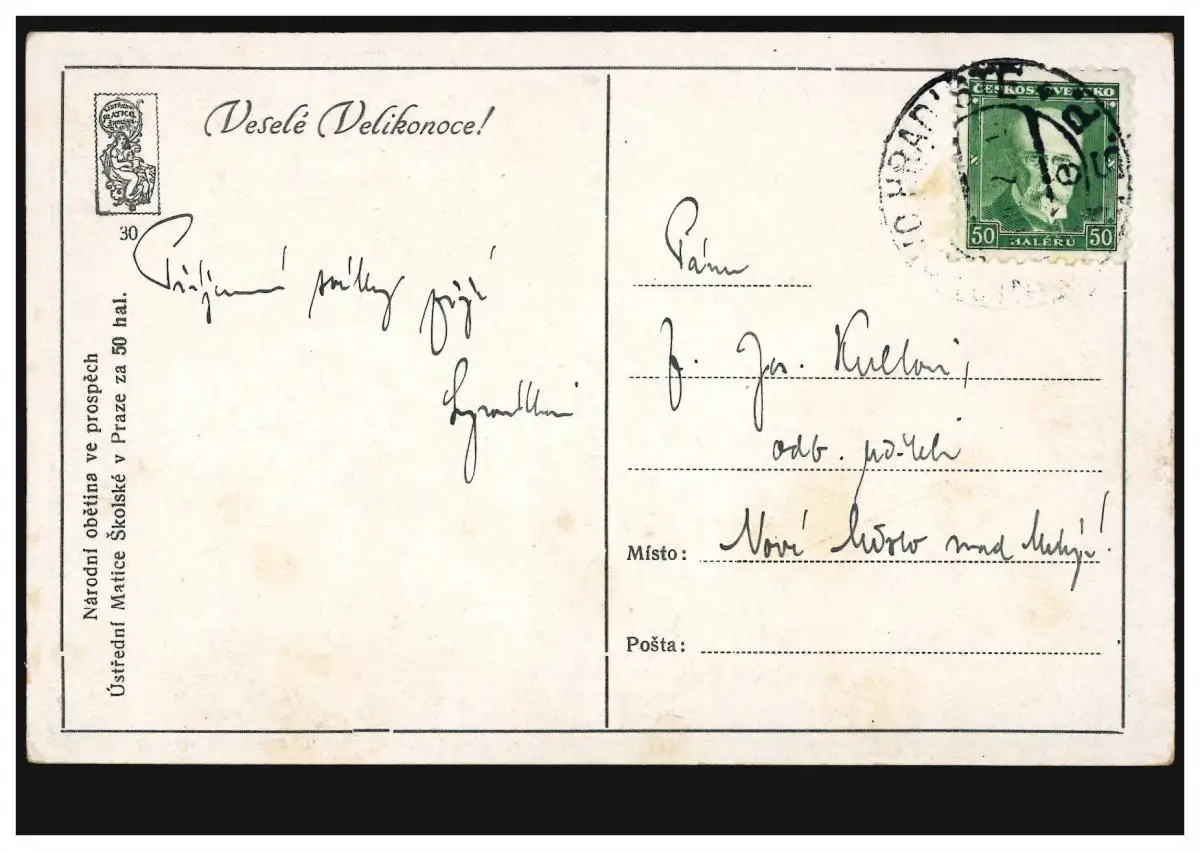 ÚSTŘEDNÍ
MATICE
ŠKOLSKÁ
30
Veselé Velikonoce!
Příjemné svátky přejí
Národní obětina ve prospěch
Ústřední Matice Školské v Praze za 50 hal.
ČESKOSLOVENSKO
50 HALÉŘŮ 50
HRADIŠTĚ
Pánu
Jos.
odb. učiteli
Místo: Nové Město nad Metují!
Pošta: